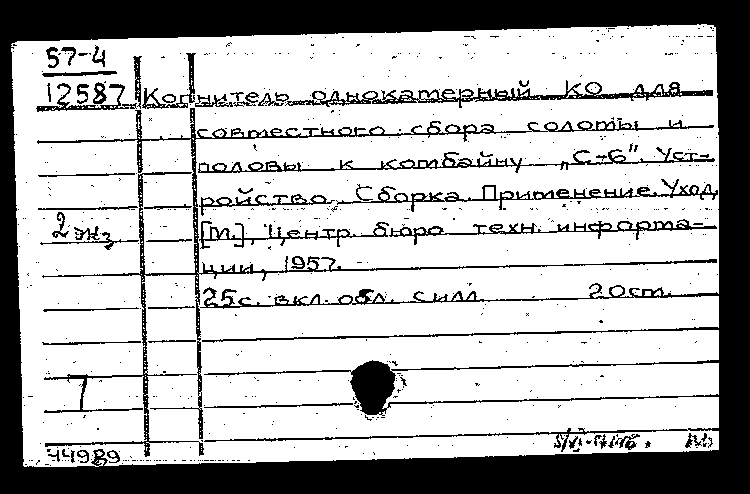 57-4
12587 Копнитель однокамерный КО для
совместного сбора соломы и
половы к комбайну „С-6". Уст-
ройство. Сборка. Применение. Уход.
2 экз [М.], Центр. бюро техн. информа-
ции, 1957.
25с. вкл. обл. с илл. 20см.
7
44989